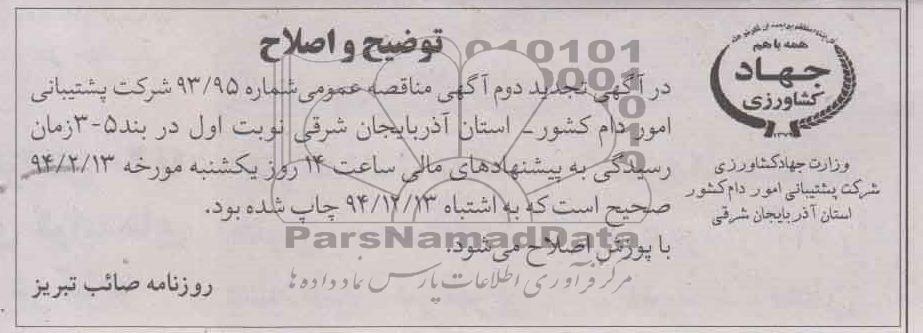 توضیح و اصلاح
در آگهی تجدید دوم آگهی مناقصه عمومی شماره ۹۳/۹۵ شرکت پشتیبانی
امور دام کشور ـ استان آذربایجان شرقی نوبت اول در بند ۵-۳ زمان
رسیدگی به پیشنهادهای مالی ساعت ۱۴ روز یکشنبه مورخه ۹۴/۲/۱۳
صحیح است که به اشتباه ۹۴/۱۲/۱۳ چاپ شده بود.
با پوزش اصلاح می‌شود.
روزنامه صائب تبریز
همه با هم
جهاد
کشاورزی
وزارت جهادکشاورزی
شرکت پشتیبانی امور دام کشور
استان آذربایجان شرقی
ParsNamadData
مرکز فرآوری اطلاعات پارس نماد داده ها